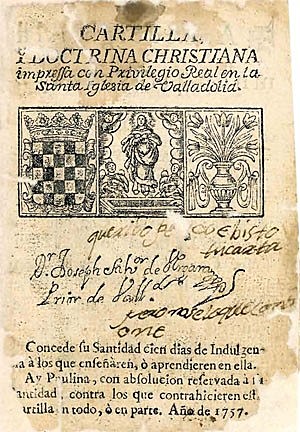 CARTILLA,
Y DOCTRINA CHRISTIANA
impressa con Privilegio Real en la
Santa Iglesia de Valladolid.
que
Dr. Joseph
de
Prior de Vall
Concede su Santidad cien dias de Indulgen
à los que enseñaren, ò aprendieren en ella.
Ay Paulina, con absolucion reservada à
antidad, contra los que contrahicieren es
artilla en todo, ò en parte. Año de 1757.